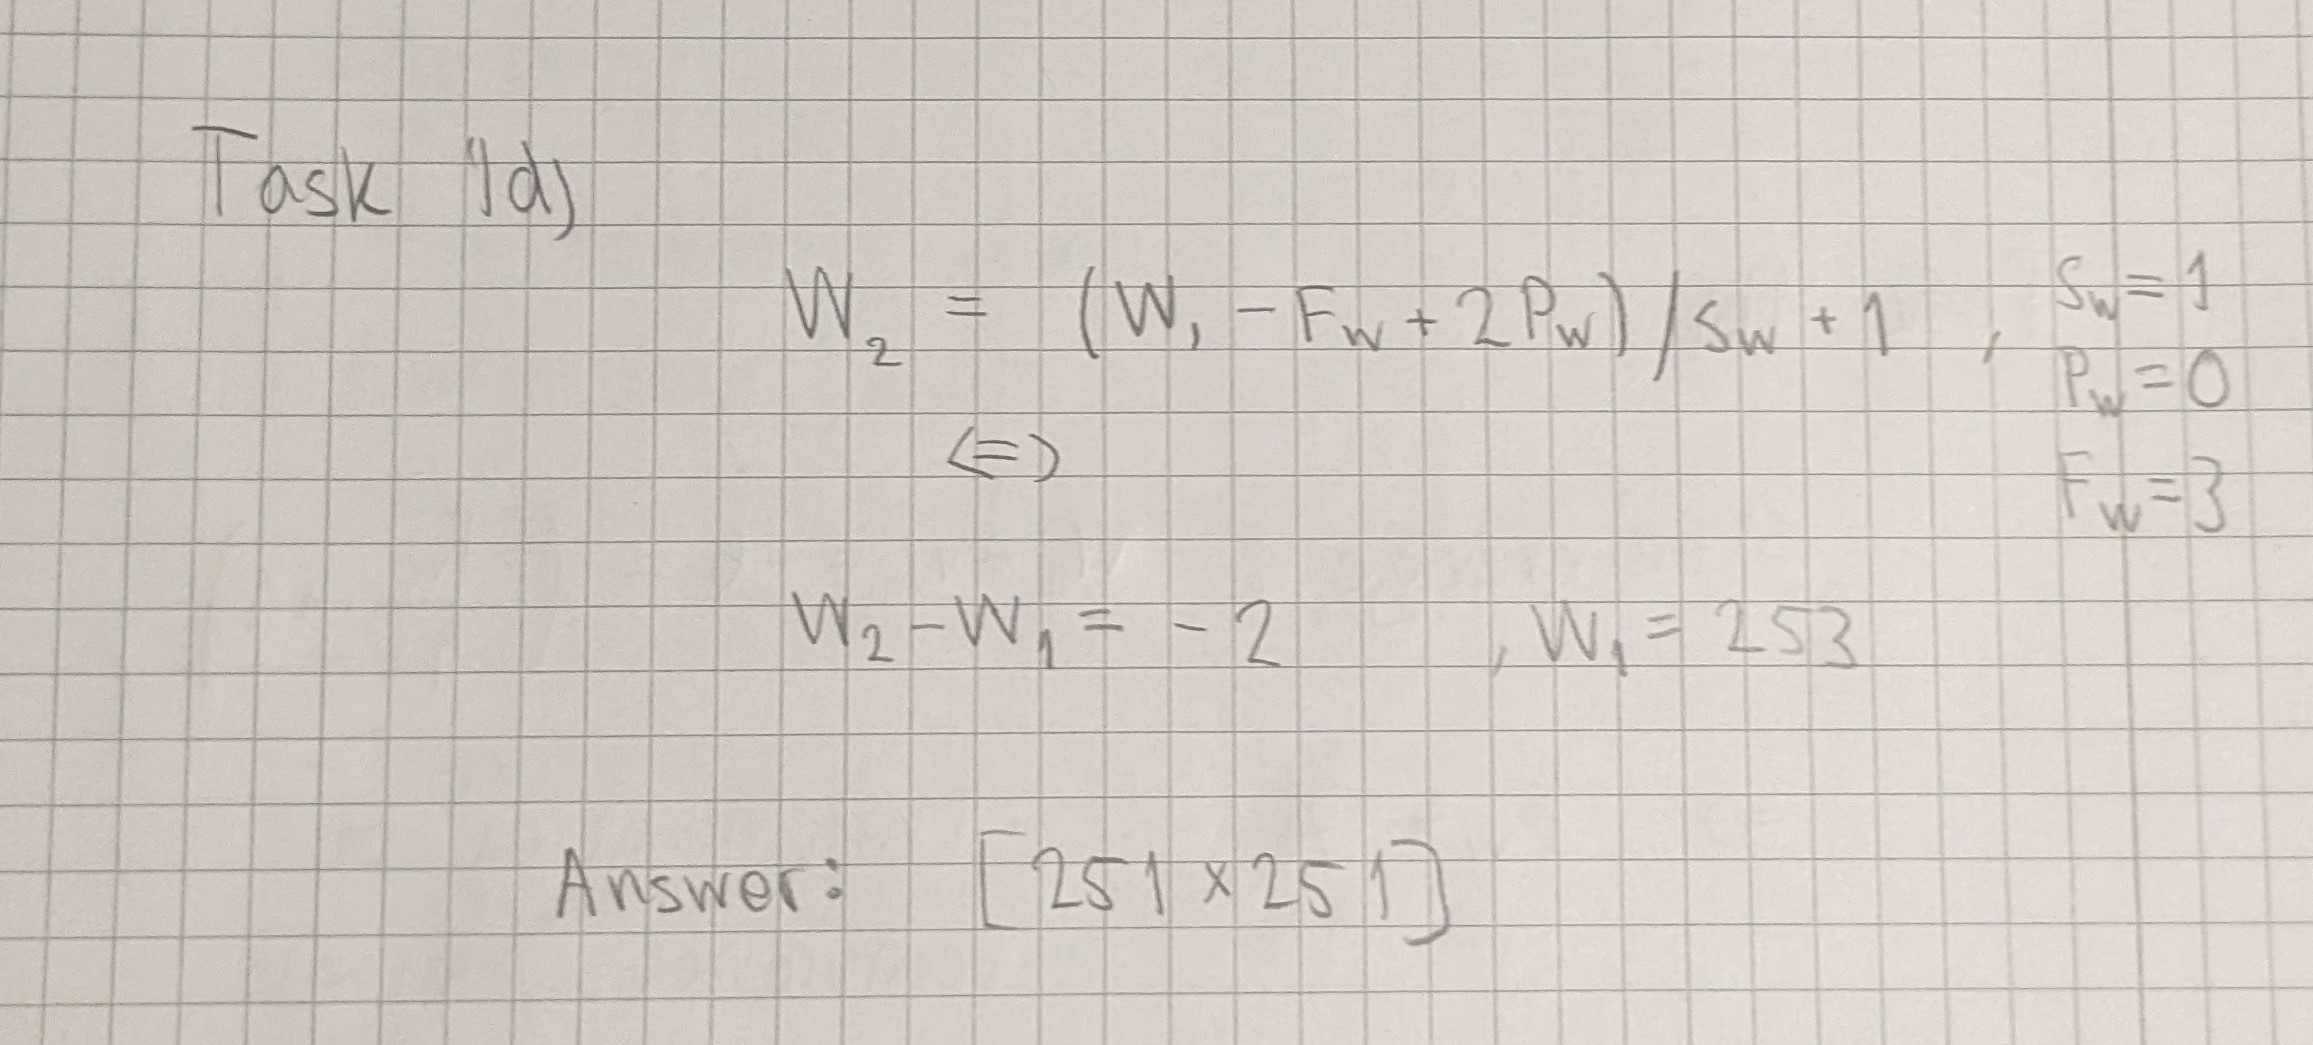 Task 1d)
W₂ = (W₁ - F_W + 2P_W)/S_W + 1 , S_W = 1
P_W = 0
<=>
F_W = 3
W₂ - W₁ = - 2 , W₁ = 253
Answer: [251 x 251]